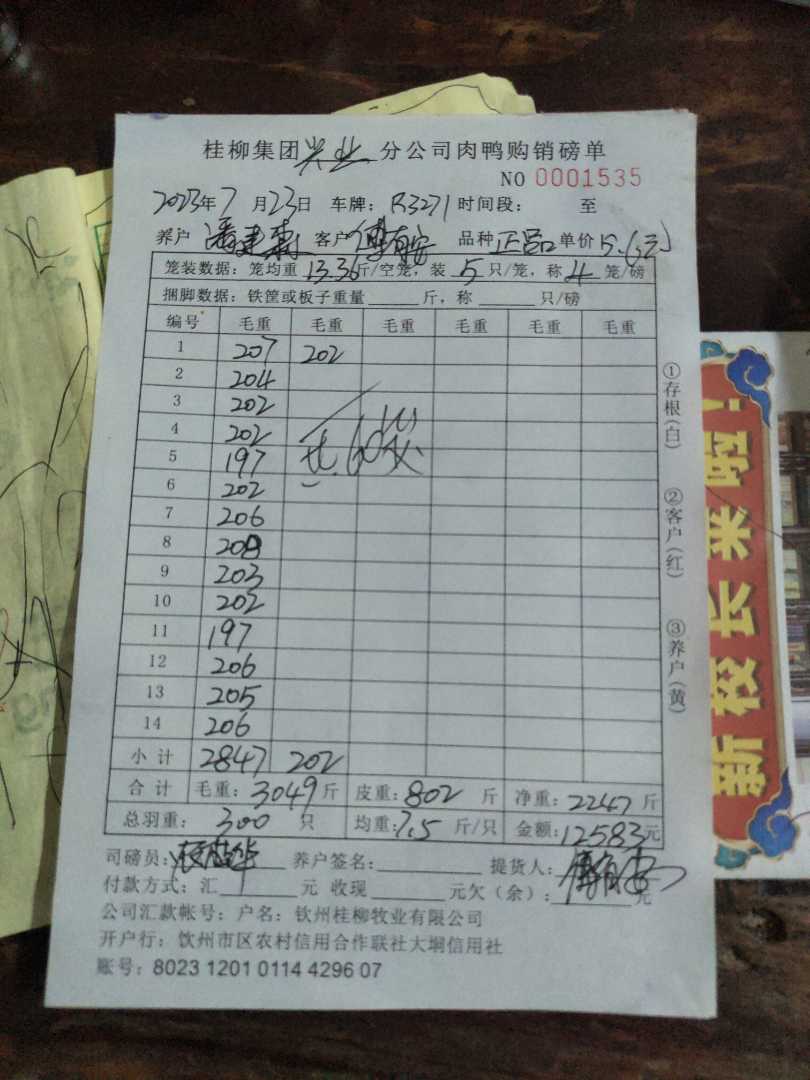 桂柳集团兴业分公司肉鸭购销磅单
NO 0001535
2023年7月23日 车牌：R3271 时间段： 至
养户 客户 傅有安 品种 单价5.6元
笼装数据：笼均重13.36斤/空笼，装5只/笼，称4笼/磅
捆脚数据：铁筐或板子重量 斤，称 只/磅
编号 毛重 毛重 毛重 毛重 毛重 毛重
1 207 202
2 204
3 202
4 202
5 197
6 202
7 206
8 208
9 203
10 202
11 197
12 206
13 205
14 206
共60笼
小计 2847 202
合计 毛重：3049斤 皮重：802斤 净重：2247斤
总羽重：300只 均重：7.5斤/只 金额：12583元
司磅员： 养户签名： 提货人：傅有安
付款方式：汇 元 收现 元欠（余）： 元
公司汇款帐号：户名：钦州桂柳牧业有限公司
开户行：饮州市区农村信用合作联社大垌信用社
账号：8023 1201 0114 4296 07
①存根(白)
②客户(红)
③养户(黄)
新校长来啦！